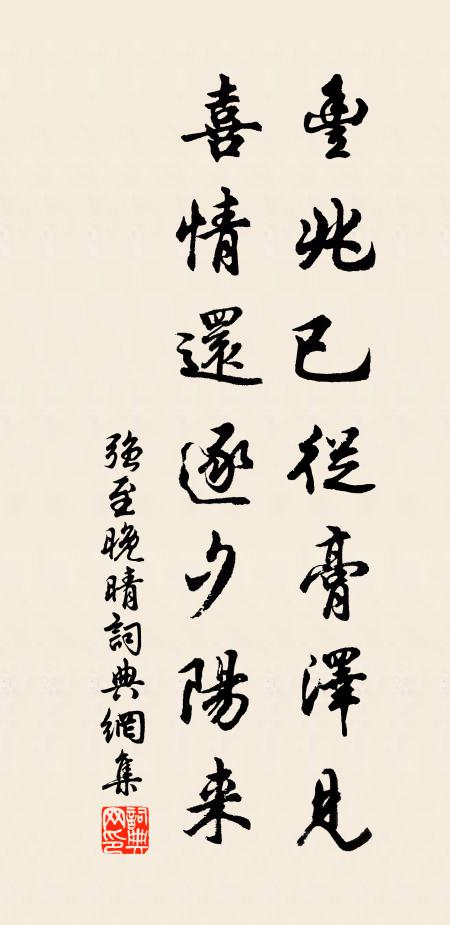 豐兆已從膏澤見
喜情還逐夕陽来
強至晚晴詞典網集
詞典网印